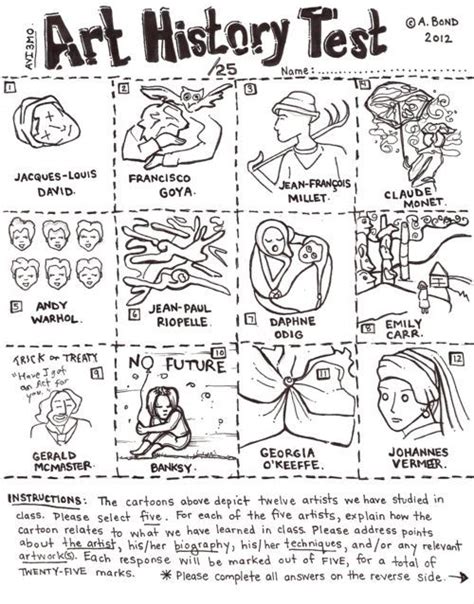 AVI3MO
Art History Test
© A. BOND
2012
/25
Name:
1
JACQUES-LOUIS
DAVID.
2
FRANCISCO
GOYA.
3
JEAN-FRANÇOIS
MILLET.
4
CLAUDE
MONET.
5
ANDY
WARHOL.
6
JEAN-PAUL
RIOPELLE.
7
DAPHNE
ODIG
8
EMILY
CARR.
TRICK OR TREATY
"Have I got
an Art for
you."
9
GERALD
MCMASTER.
NO FUTURE
10
BANKSY.
11
GEORGIA
O'KEEFFE.
12
JOHANNES
VERMEER.
INSTRUCTIONS: The cartoons above depict twelve artists we have studied in
class. Please select five. For each of the five artists, explain how the
cartoon relates to what we have learned in class. Please address points
about the artist, his/her biography, his/her techniques, and/or any relevant
artwork(s). Each response will be marked out of FIVE, for a total of
TWENTY-FIVE marks. * Please complete all answers on the reverse side. →